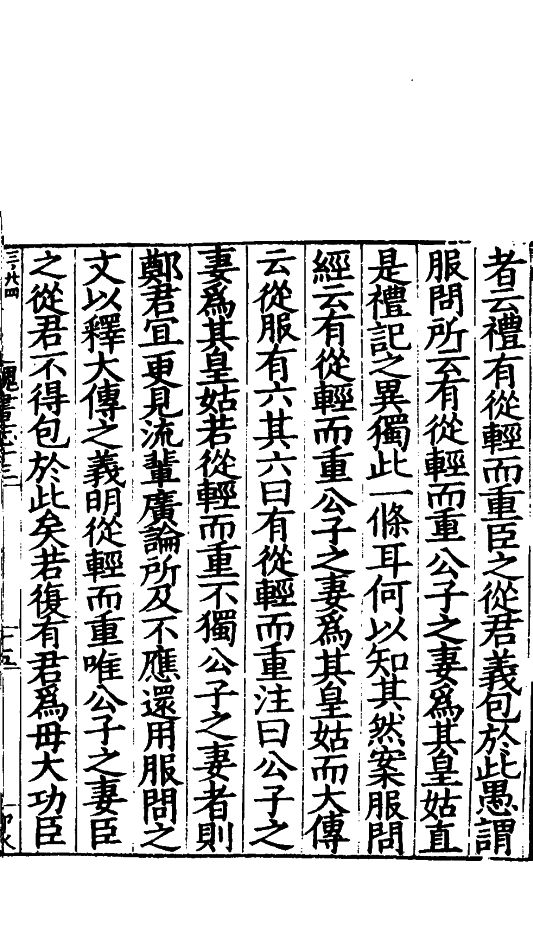 者云禮有從輕而重臣之從君義包於此愚謂
服問所云有從輕而重公子之妻爲其皇姑直
是禮記之異獨此一條耳何以知其然案服問
經云有從輕而重公子之妻爲其皇姑而大傳
云從服有六其六曰有從輕而重注曰公子之
妻爲其皇姑若從輕而重不獨公子之妻者則
鄭君宜更見流輩廣論所及不應還用服問之
文以釋大傳之義明從輕而重唯公子之妻臣
之從君不得包於此矣若復有君爲毋大功臣
三・卄四
魏書志十三
十五